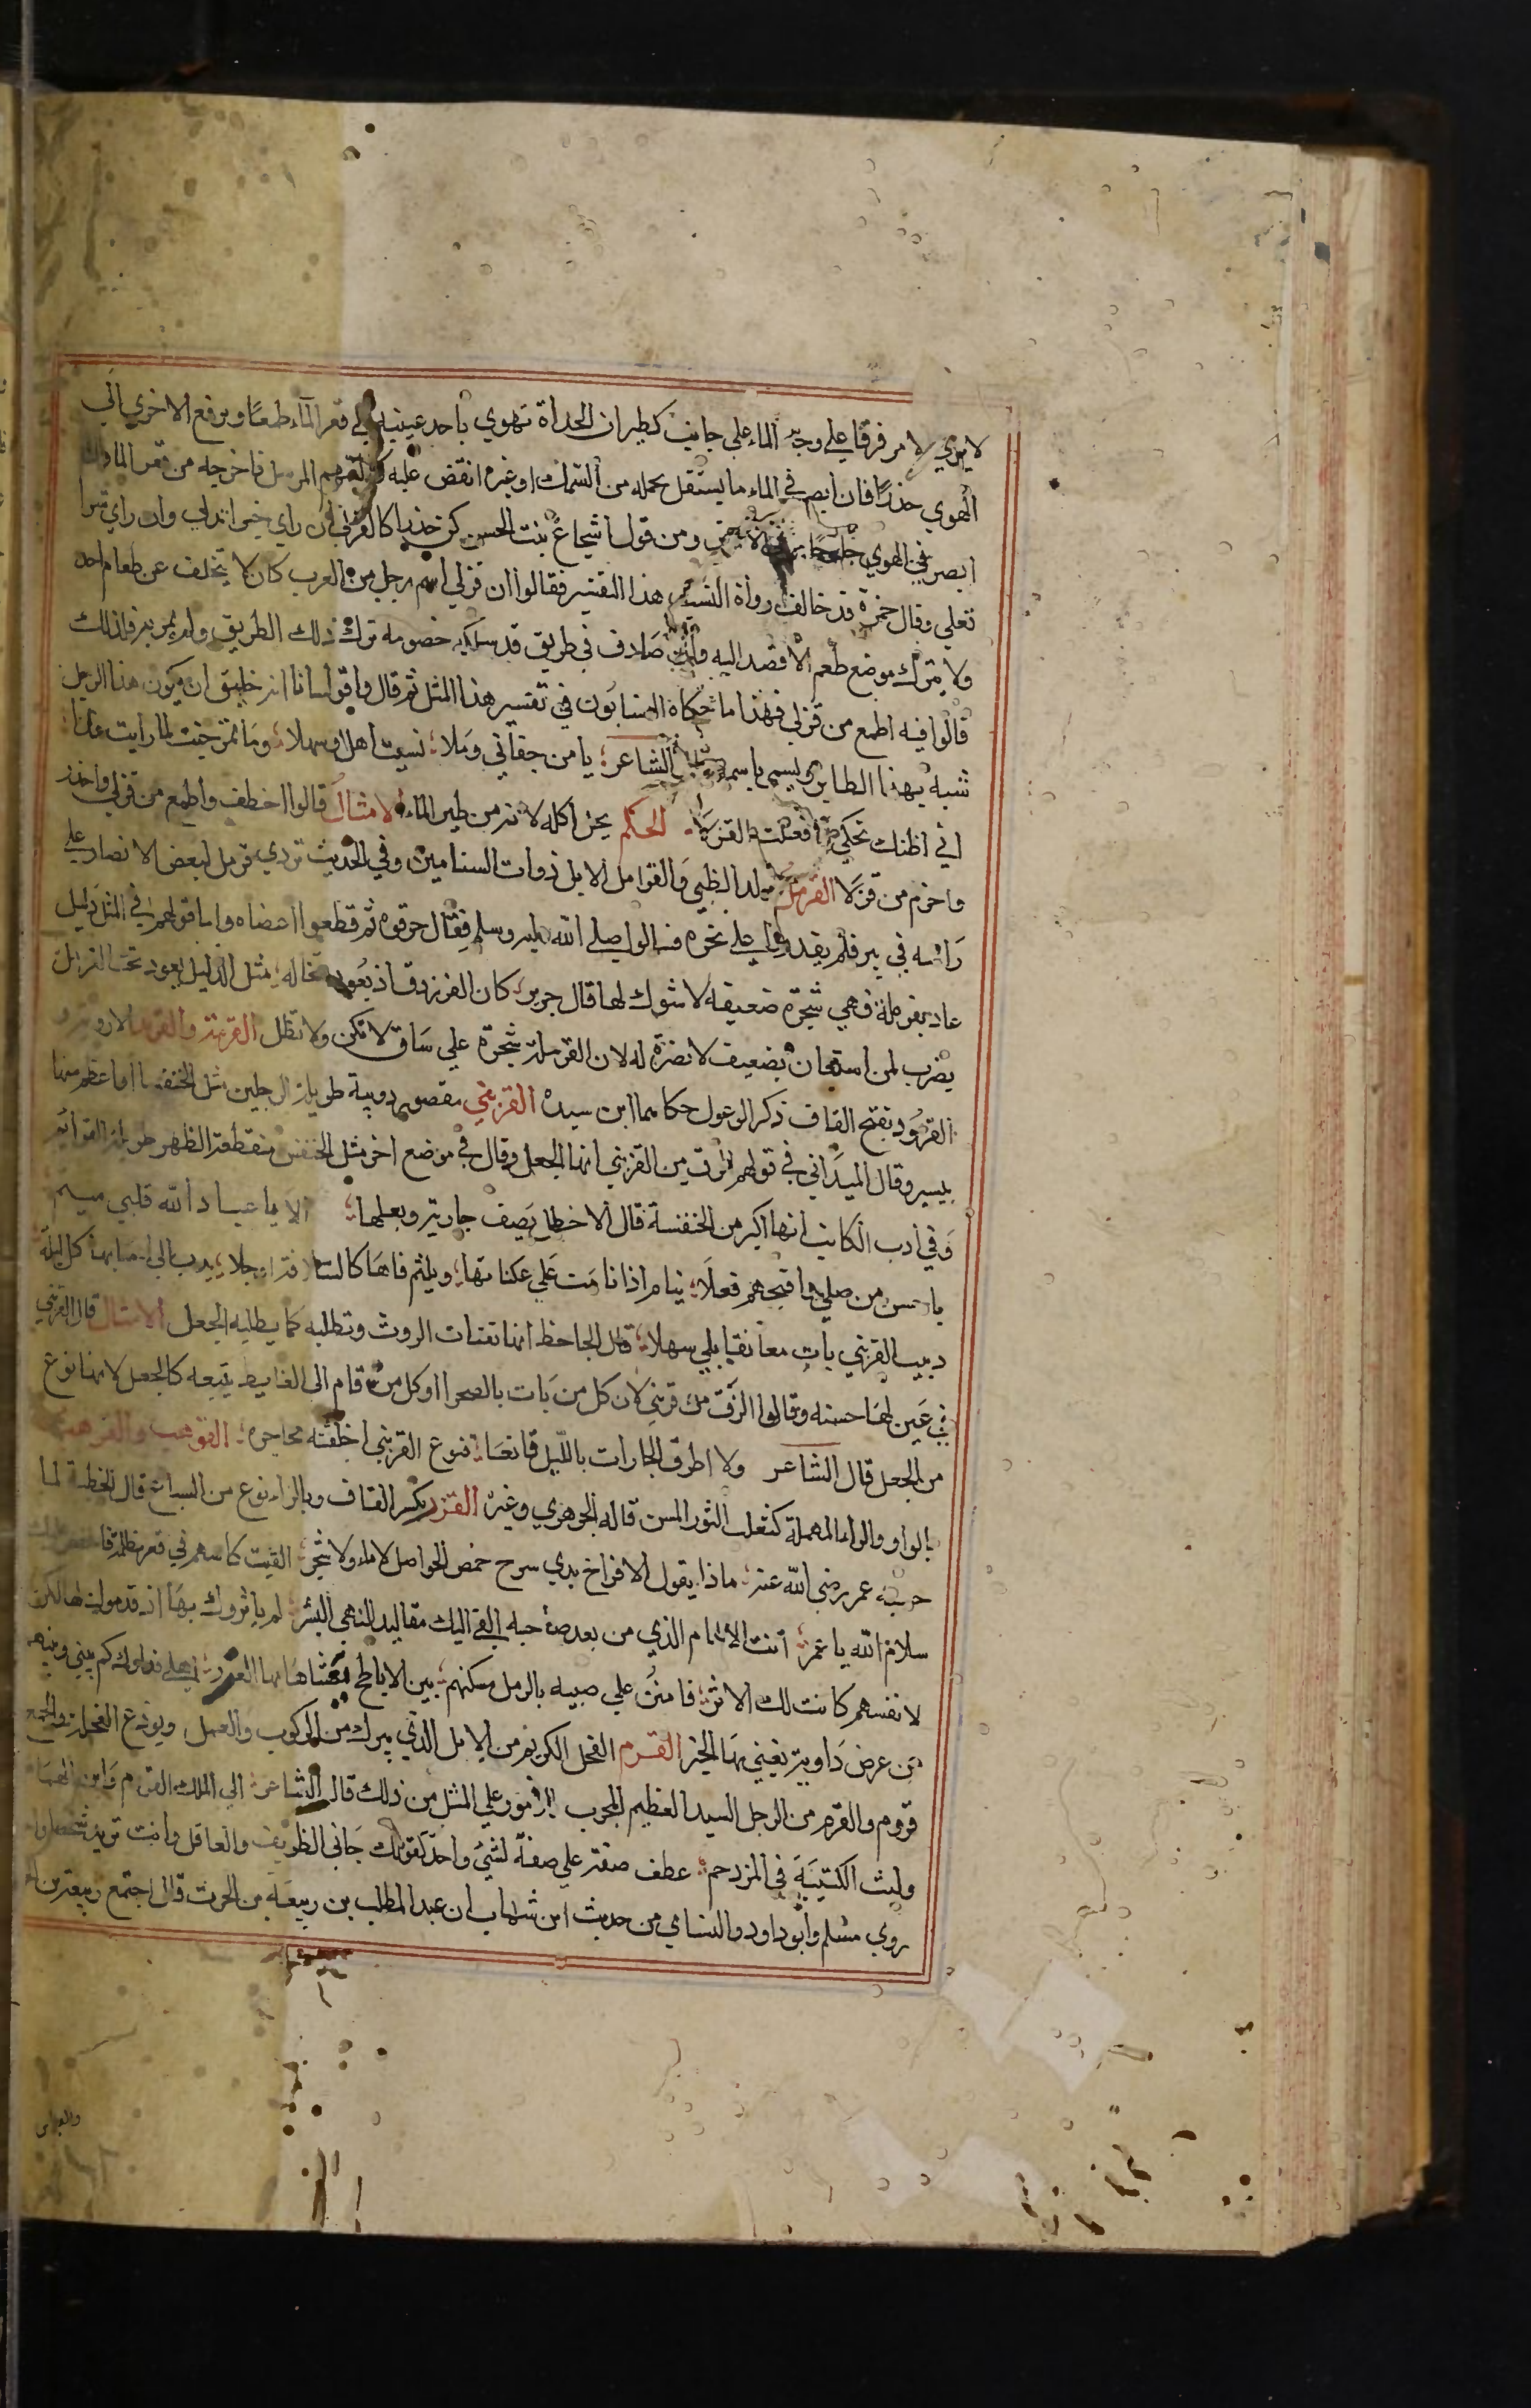 لا يري الا مرفرقا علي وجه الماء علي جانب كطيران الحداة تهوي باحد عينيه الي قعر الماء طمعا ويرفع الاخري الي
الهوي حذرا فان ابصر في الماء ما يستقل بحمله من السمك او غيره انقض عليه كالسهم المرسل فاخرجه من قعر الماء وان
ابصر في الهوي جارحا ومن قول اشجاع بنت الحسن كن حذرا كالقرلي ان راي خيرا تدلي وان راي شرا
تعلي وقال حمزة قد خالف رواة النسب هذا التفسير فقالوا ان قرلي اسم رجل من العرب كان لا يتخلف عن طعام احد
ولا يترك موضع طعم الا قصد اليه وان صادف في طريق قد سلكه خصومة ترك ذلك الطريق ولم يمر به فلذلك
قالوا فيه اطمع من قرلي فهذا ما حكاه النسابون في تفسير هذا المثل ثم قال واقول انا انه خليق ان يكون هذا الرجل
شبه بهذا الطاير ويسمي باسمه قال الشاعر يا من جفاني وملا نسيت اهلا وسهلا وما ترحبت لما رايت مالي
اني اظنك تحكي فعلت القرلا الحكم يحل اكله لانه من طير الماء الامثال قالوا اخطف واطمع من قرلي واحذر
واحزم من قرلا القرمل ولد الظبي والقرامل الابل ذوات السنامين وفي الحديث تردي قرمل لبعض الانصار علي
راسه في بير فلم يقدروا علي نحره فسالوا صلي الله عليه وسلم فقال حرقوه ثم قطعوا اعضاه واما قولهم في المثل ذليل
عاد بقرملة فهي شجرة ضعيفة لا شوك لها قال جرير كان الفرزدق اذ يعود بخاله مثل الذليل يعود تحت القرمل
يضرب لمن استعان بضعيف لا نصرة له لان القرملة شجرة علي ساق لا تكن ولا تظل القرهد الاروية و
القرهود بفتح القاف ذكر الوعول حكاهما ابن سيده القرنبي مقصور دويبة طويلة الرجلين مثل الخنفسا اعظم منها
بيسير وقال الميداني في قولهم الزق من القرنبي انها الجعل وقال في موضع اخر مثل الخنفس منقطة الظهر طويلة القوائم
وفي ادب الكاتب انها اكبر من الخنفسة قال الاخطل يصف جارية وبعلها الا يا عباد الله قلبي متيم
باحسن من صلي واقبحهم فعلا ينام اذا نامت علي عكناتها ويلثم فاها كالسلافة او احلا يدب الي احشايها كل ليلة
دبيب القرنبي بات معا نقيا يلي سهلا قال الجاحظ انها تقتات الروث وتطلبه كما يطلبه الجعل الامثال قال القرنبي
في عين امها حسنة وقالوا الزق من قرنبي لان كل من بات بالصحرا او كل من قام الي الغايط يتبعه كالجعل لانها نوع
من الجعل قال الشاعر ولا اطرق الجارات بالليل قانعا قبوع القرنبي اخلفته محاجره القرهب والقرهب
بالواو والراء المهملة كثعلب الثور المسن قاله الجوهري وغيره القزر بكسر القاف وبالزاء نوع من السباع قال الحطية لما
حبسه عمر رضي الله عنه ماذا يقول الافراخ بذي سرح حمص الحواصل لا ماء ولا شجر القيت كاسهم في قعر مظلمة فاغفر عليك
سلام الله يا عمر انت الامام الذي من بعد صاحبه القي اليك مقاليد النهي البشر لم ياثروك بها اذ قدموك لها لكن
لانفسهم كانت لك الاثر فامنن علي صبيه بالرمل مسكنهم بين الاباطح يغشاها بها القزر اهلي فداوك كم بيني وبينهم
من عرض داوية يعني بها الخبر القرم الفحل الكريم من الابل الذي يترك من الركوب والعمل ويودع الفحلة والجمع
قروم والقرم من الرجل السيد العظيم المجرب للامور علي المثل من ذلك قال الشاعر الي الملك القرم وابن الهمام
وليث الكتيبة في المزدحم عطف صفة علي صفة لشي واحد كقولك جاني الظريف والعاقل وانت تريد شخصا واحدا
روي مسلم وابو داود والنساي من حديث ابن شهاب ان عبد المطلب بن ربيعة بن الحرث قال اجتمع ربيعة بن
والعباس